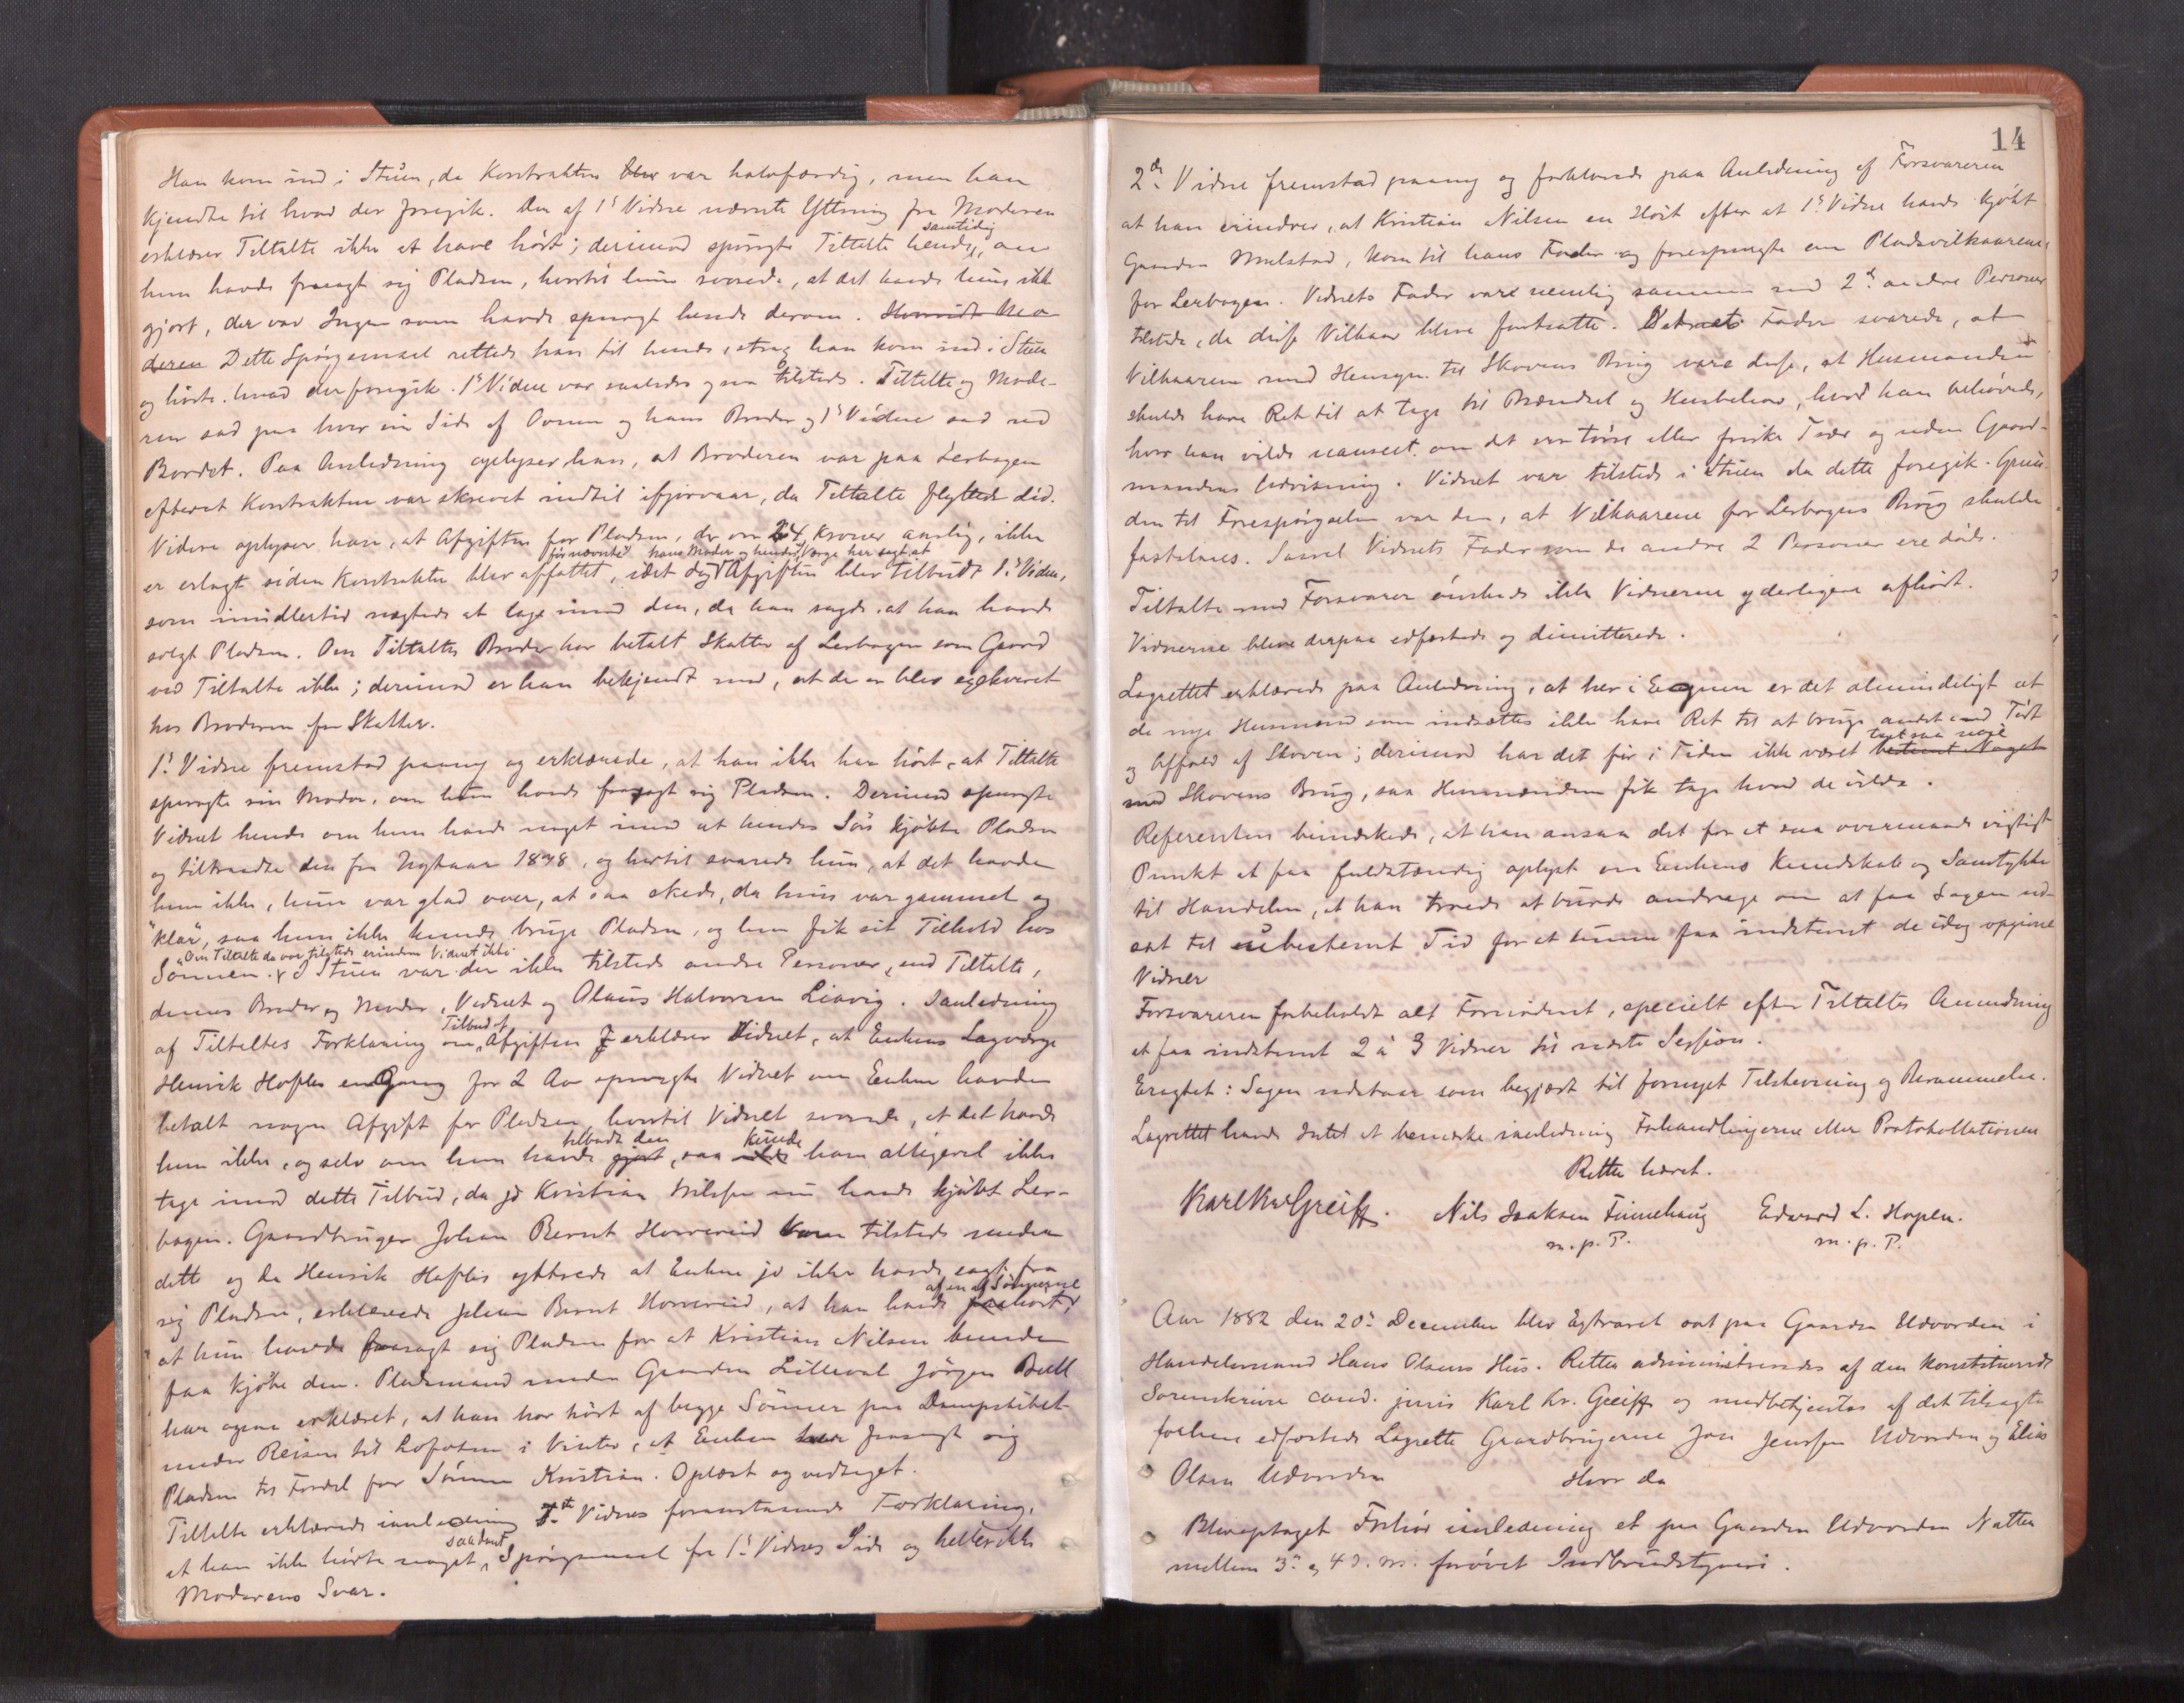 Han kom ind i Stuen, da Kontrakten blev var halvfærdig, men han
kjendte til hvad der foregik. Den af 1s Vidne nævnte Yttring fra Moderen
erklærer Tiltalte ikke at have hørt; derimod spurgte Tiltalte hende samtidig, om
hun havde frasagt sig Pladsen, hvortil hun svarede, at det havde hun ikke
gjort, der var Ingen som havde spurgt hende derom. Hvorvidt Mo
deren Dette Spørgsmaal rettede han til hende, strax han kom ind i Stuen
og hørte hvad der foregik. 1s Vidne var saaledes ogsaa tilstede. Tiltalte og Mode-
ren sad paa hver sin Side af Ovnen og hans Broder og 1s Vidne sad ved
Bordet. Paa Anledning oplyser han, at Broderen var paa Lerbogen
efterat Kontrakten var skrevet indtil ifjorvaar, da Tiltalte flyttede did.
Videre oplyser han, at Afgiften for Pladsen, der var 24 Kroner aarlig, ikke
er erlagt siden Kontrakten blev affattet, idet dog førnævnte hans Moder og hendes Værge har sagt at Afgiften blev tilbudt 1s Vidne,
som imidlertid nægtede at tage imod den, da han sagde at han havde
solgt Pladsen. Om Tiltaltes Broder har betalt Skatter af Lerbogen som Gaard
ved Tiltalte ikke; derimod er han bekjendt med, at der er blev exekveret
hos Broderen for Skatter.
1s Vidne fremstod paany og erklærede, at han ikke har hørt, at Tiltalte
spurgte sin Moder, om hun havde frasagt sig Pladsen. Derimod spurgte
Vidnet hende om hun havde noget imod at hendes Søn kjøbte Pladsen
og tiltraadte den fra Nytaar 1878, og hertil svarede hun, at det havde
hun ikke, hun var glad over, at saa skede, da hun var gammel og
"klar", saa hun ikke kunde bruge Pladsen, og hun fik sit Tilhold hos
Sønnen. Om Tiltalte da var tilstede erindrer Vidnet ikke. I Stuen var der ikke tilstede andre Personer, end Tiltalte,
dennes Broder og Moder, Vidnet og Olaus Halvorsen Liavig. I anledning
af Tiltaltes Forklaring om Tilbud af Afgiften erklærer Vidnet, at Enkens Lagværge
Henrik Hofles en Gang for 2 Aar spurgte Vidnet om Enken havde
betalt nogen Afgift for Pladsen, hvortil Vidnet svarede, at det havde
hun ikke, og selv om hun havde gjort tilbudt den, saa vilde kunde han alligevel ikke
tage imod dette Tilbud, da jo Kristian Nilsen nu havde kjøbt Ler-
bogen. Gaardbruger Johan Bernt Horvereid kom tilstede under
dette og da Henrik Hofles yttrede at Enken jo ikke havde sagt fra
sig Pladsen, erklærede Johan Bernt Horvereid, at han havde hørt af en af Sønnerne
at hun havde frasagt sig Pladsen for at Kristian Nilsen kunde
faa kjøbe den. Pladsmand under Gaarden Lilleval Jørgen Bull
har ogsaa erklæret, at han har hørt af begge Sønner paa Dampskibet
under Reisen til Lofoten i Vinter, at Enken har frasagt sig
Pladsen til Fordel for Sønnen Kristian. Oplæst og vedtaget.
Tiltalte erklærede i anledning 1ste Vidnes foranstaaende Forklaring,
at han ikke hørte noget saadant Spørgsmaal fra 1s Vidnes Side og heller ikke
Moderens Svar.
14
2det Vidne fremstod paany og forklarede paa Anledning af Forsvareren
at han erindrer, at Kristian Nilsen en Høst efter at 1s Vidne havde kjøbt
Gaarden , kom til hans Fader og forespurgte om Pladsvilkaarene
for Lerbogen. Vidnets Fader var nemlig sammen med 2de andre Personer
tilstede, da disse Vilkaar bleve fastsatte. Vidnets Fader svarede, at
Vilkaarene med Hensyn til Skovens Brug vare disse, at Husmanden
skulde have Ret til at tage til Brændsel og Husbehov, hvad han behøvede,
hvor han vilde uanseet om det var tørre eller friske Trær og uden Gaard-
mandens Udvisning. Vidnet var tilstede i Stuen da dette foregik. Grun-
den til Forespørgselen var den, at Vilkaarene for Lerbogens Brug skulde
fastslaaes. Saavel Vidnets Fader som de andre 2 Personer ere døde.
Tiltalte med Forsvarer ønskede ikke Vidnerne yderligere afhørt.
Vidnerne bleve derpaa edfæstede og dimitterede.
Lagrettet erklærede paa Anledning, at her i Egnen er det almindeligt at
de nye Husmænd som indsættes ikke have Ret til at bruge andet end Tørt
og Affald af Skoven; derimod har det før i Tiden ikke været bestemt Noget taget saa nøie
med Skovens Brug, saa Husmændene fik tage hvad de vilde.
Referenten bemærkede, at han ansaa det for et saa overmaade vigtigt
Punkt at faa fuldstændig oplyst om Enkens Kundskab og Samtykke
til Handelen, at han troede at burde andrage om at faa Sagen ud-
sat til ubestemt Tid for at kunne faa indstevnt de idag opgivne
Vidner
Forsvareren forbeholdt alt Fornødent, specielt efter Tiltaltes Anmodning
at faa indstevnt 2 à 3 Vidner til næste Session.
Eragtet: Sagen udstaar som begjært til fornyet Tilstevning og Berammelse.
Lagrettet havde Intet at bemærke i anledning Forhandlingerne eller Protokollationen
Retten hævet.
Karl Kr Greiff. Nils Isaksen Finnehaug Edvard L. Hopen.
m. p. P. m. p. P.
Aar 1882 den 20de December blev Extraret sat paa Gaarden Udvorden i
Handelsmand Hans Olsens Hus. Retten administreredes af den konstituerede
Sorenskriver cand. juris Karl Kr. Greiff og medbetjentes af det tilsagte
forhen edfæstede Lagrette Gaardbrugerne Jon Jensen Udvorden og Elias
Olsen Udvorden Hvor da
Blev optaget Forhør i anledning et paa Gaarden Udvorden Natten
mellem 3de og 4 d. M. forøvet Indbrudstyveri.